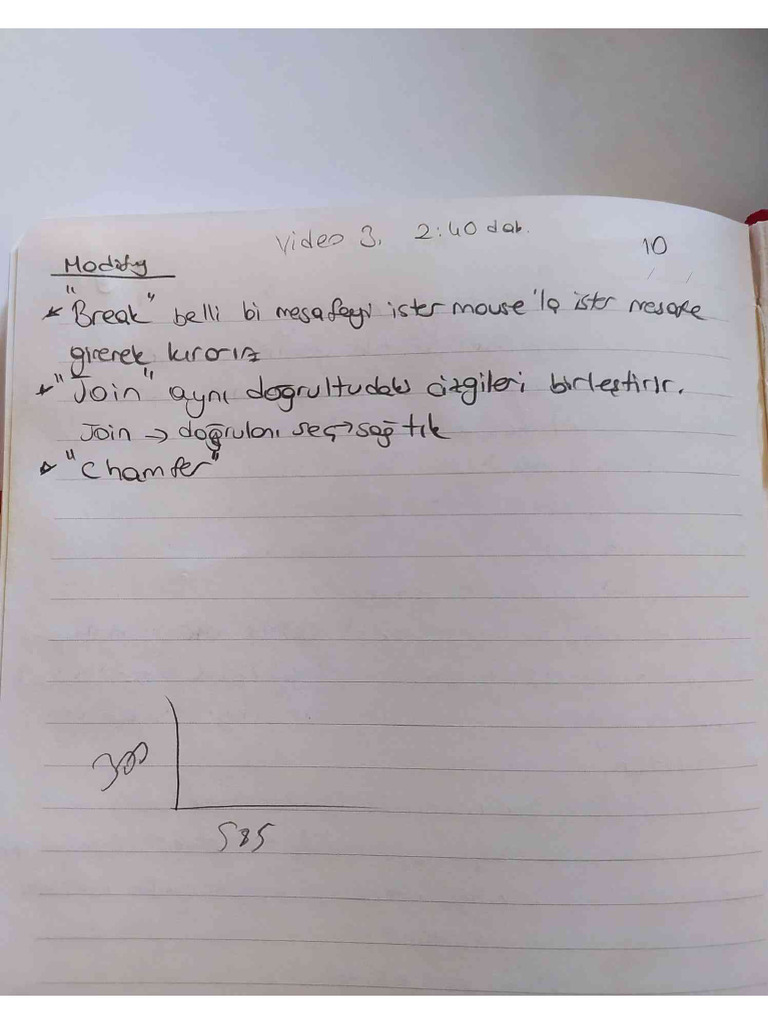 Video 3, 2:40 dak.
10
Modify
* "Break" belli bi mesafeyi ister mouse'la ister mesafe
girerek kırarız
* "Join" aynı doğrultudaki çizgileri birleştirir.
Join → doğruları seç → sağ tık
* "Chamfer"
300
585